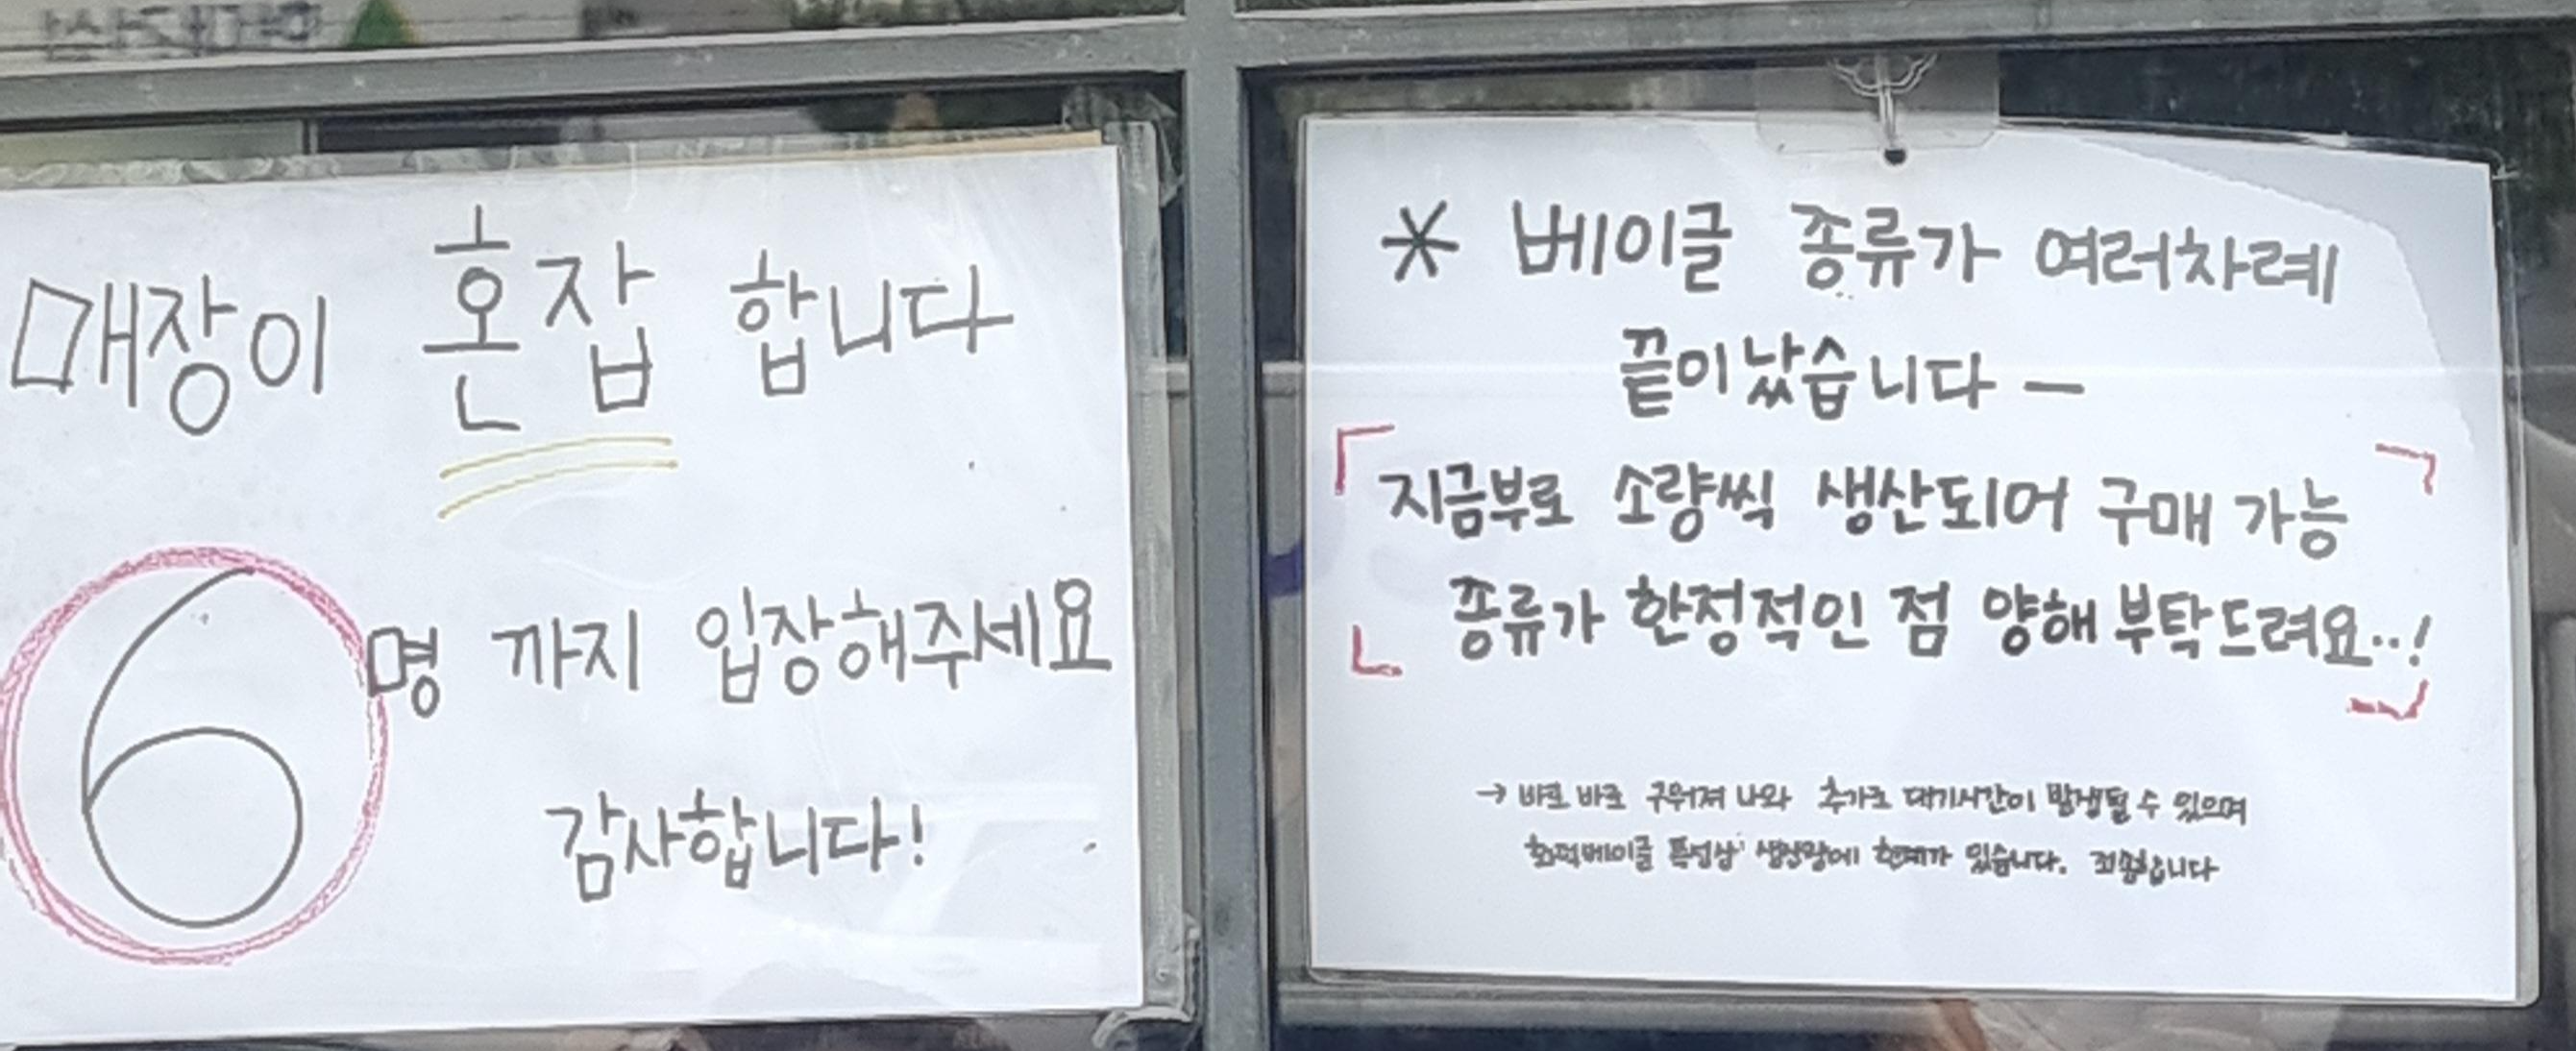 매장이 혼잡 합니다
6명 까지 입장해주세요
감사합니다!
* 베이글 종류가 여러차례
끝이났습니다 -
지금부로 소량씩 생산되어 구매 가능
종류가 한정적인 점 양해 부탁드려요..!
→ 바로 바로 구워져 나와 추가로 대기시간이 발생될 수 있으며
화덕베이글 특성상 생산량에 한계가 있습니다. 죄송합니다